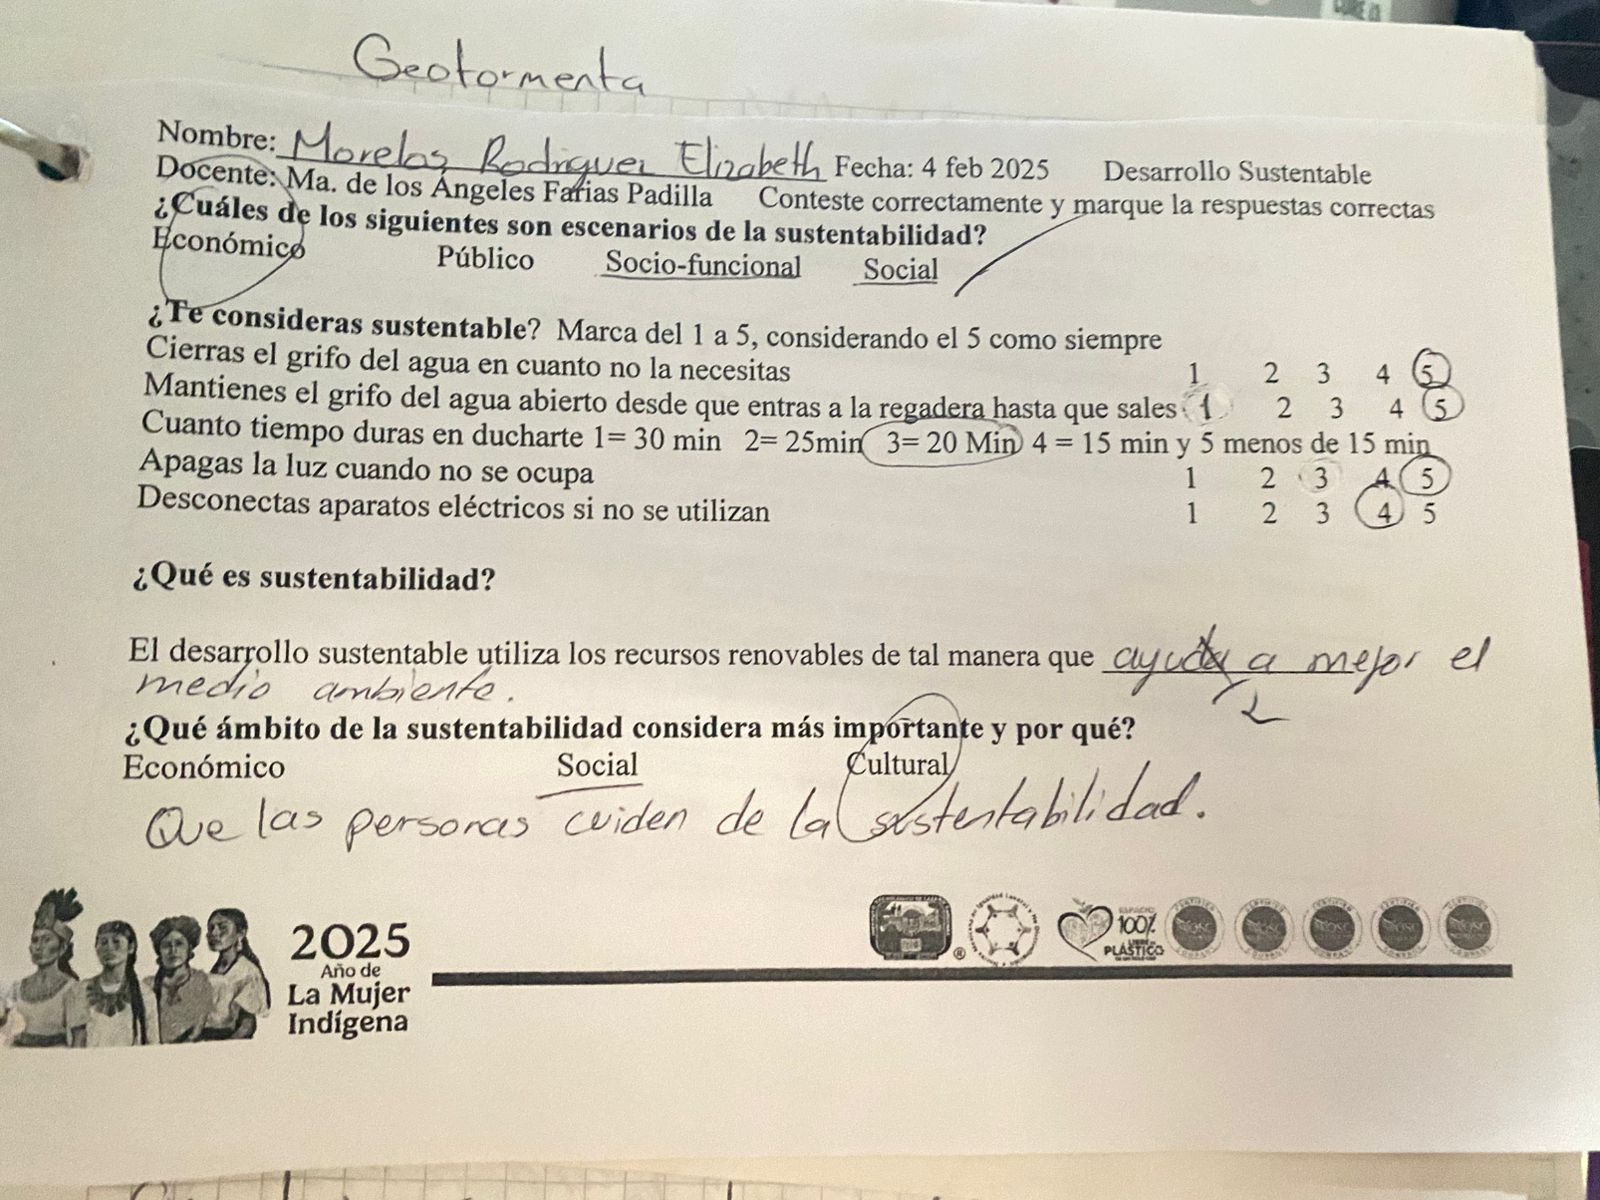 Geotormenta
Nombre: Morelos Rodriguez Elizabeth Fecha: 4 feb 2025 Desarrollo Sustentable
Docente: Ma. de los Ángeles Farias Padilla Conteste correctamente y marque la respuestas correctas
¿Cuáles de los siguientes son escenarios de la sustentabilidad?
Económico Público Socio-funcional Social
¿Te consideras sustentable? Marca del 1 a 5, considerando el 5 como siempre
Cierras el grifo del agua en cuanto no la necesitas 1 2 3 4 5
Mantienes el grifo del agua abierto desde que entras a la regadera hasta que sales 1 2 3 4 5
Cuanto tiempo duras en ducharte 1= 30 min 2= 25min 3= 20 Min 4 = 15 min y 5 menos de 15 min
Apagas la luz cuando no se ocupa 1 2 3 4 5
Desconectas aparatos eléctricos si no se utilizan 1 2 3 4 5
¿Qué es sustentabilidad?
El desarrollo sustentable utiliza los recursos renovables de tal manera que ayuda a mejor el
medio ambiente.
¿Qué ámbito de la sustentabilidad considera más importante y por qué?
Económico Social Cultural
Que las personas cuiden de la sustentabilidad.
2025
Año de
La Mujer
Indígena
100%
PLÁSTICO